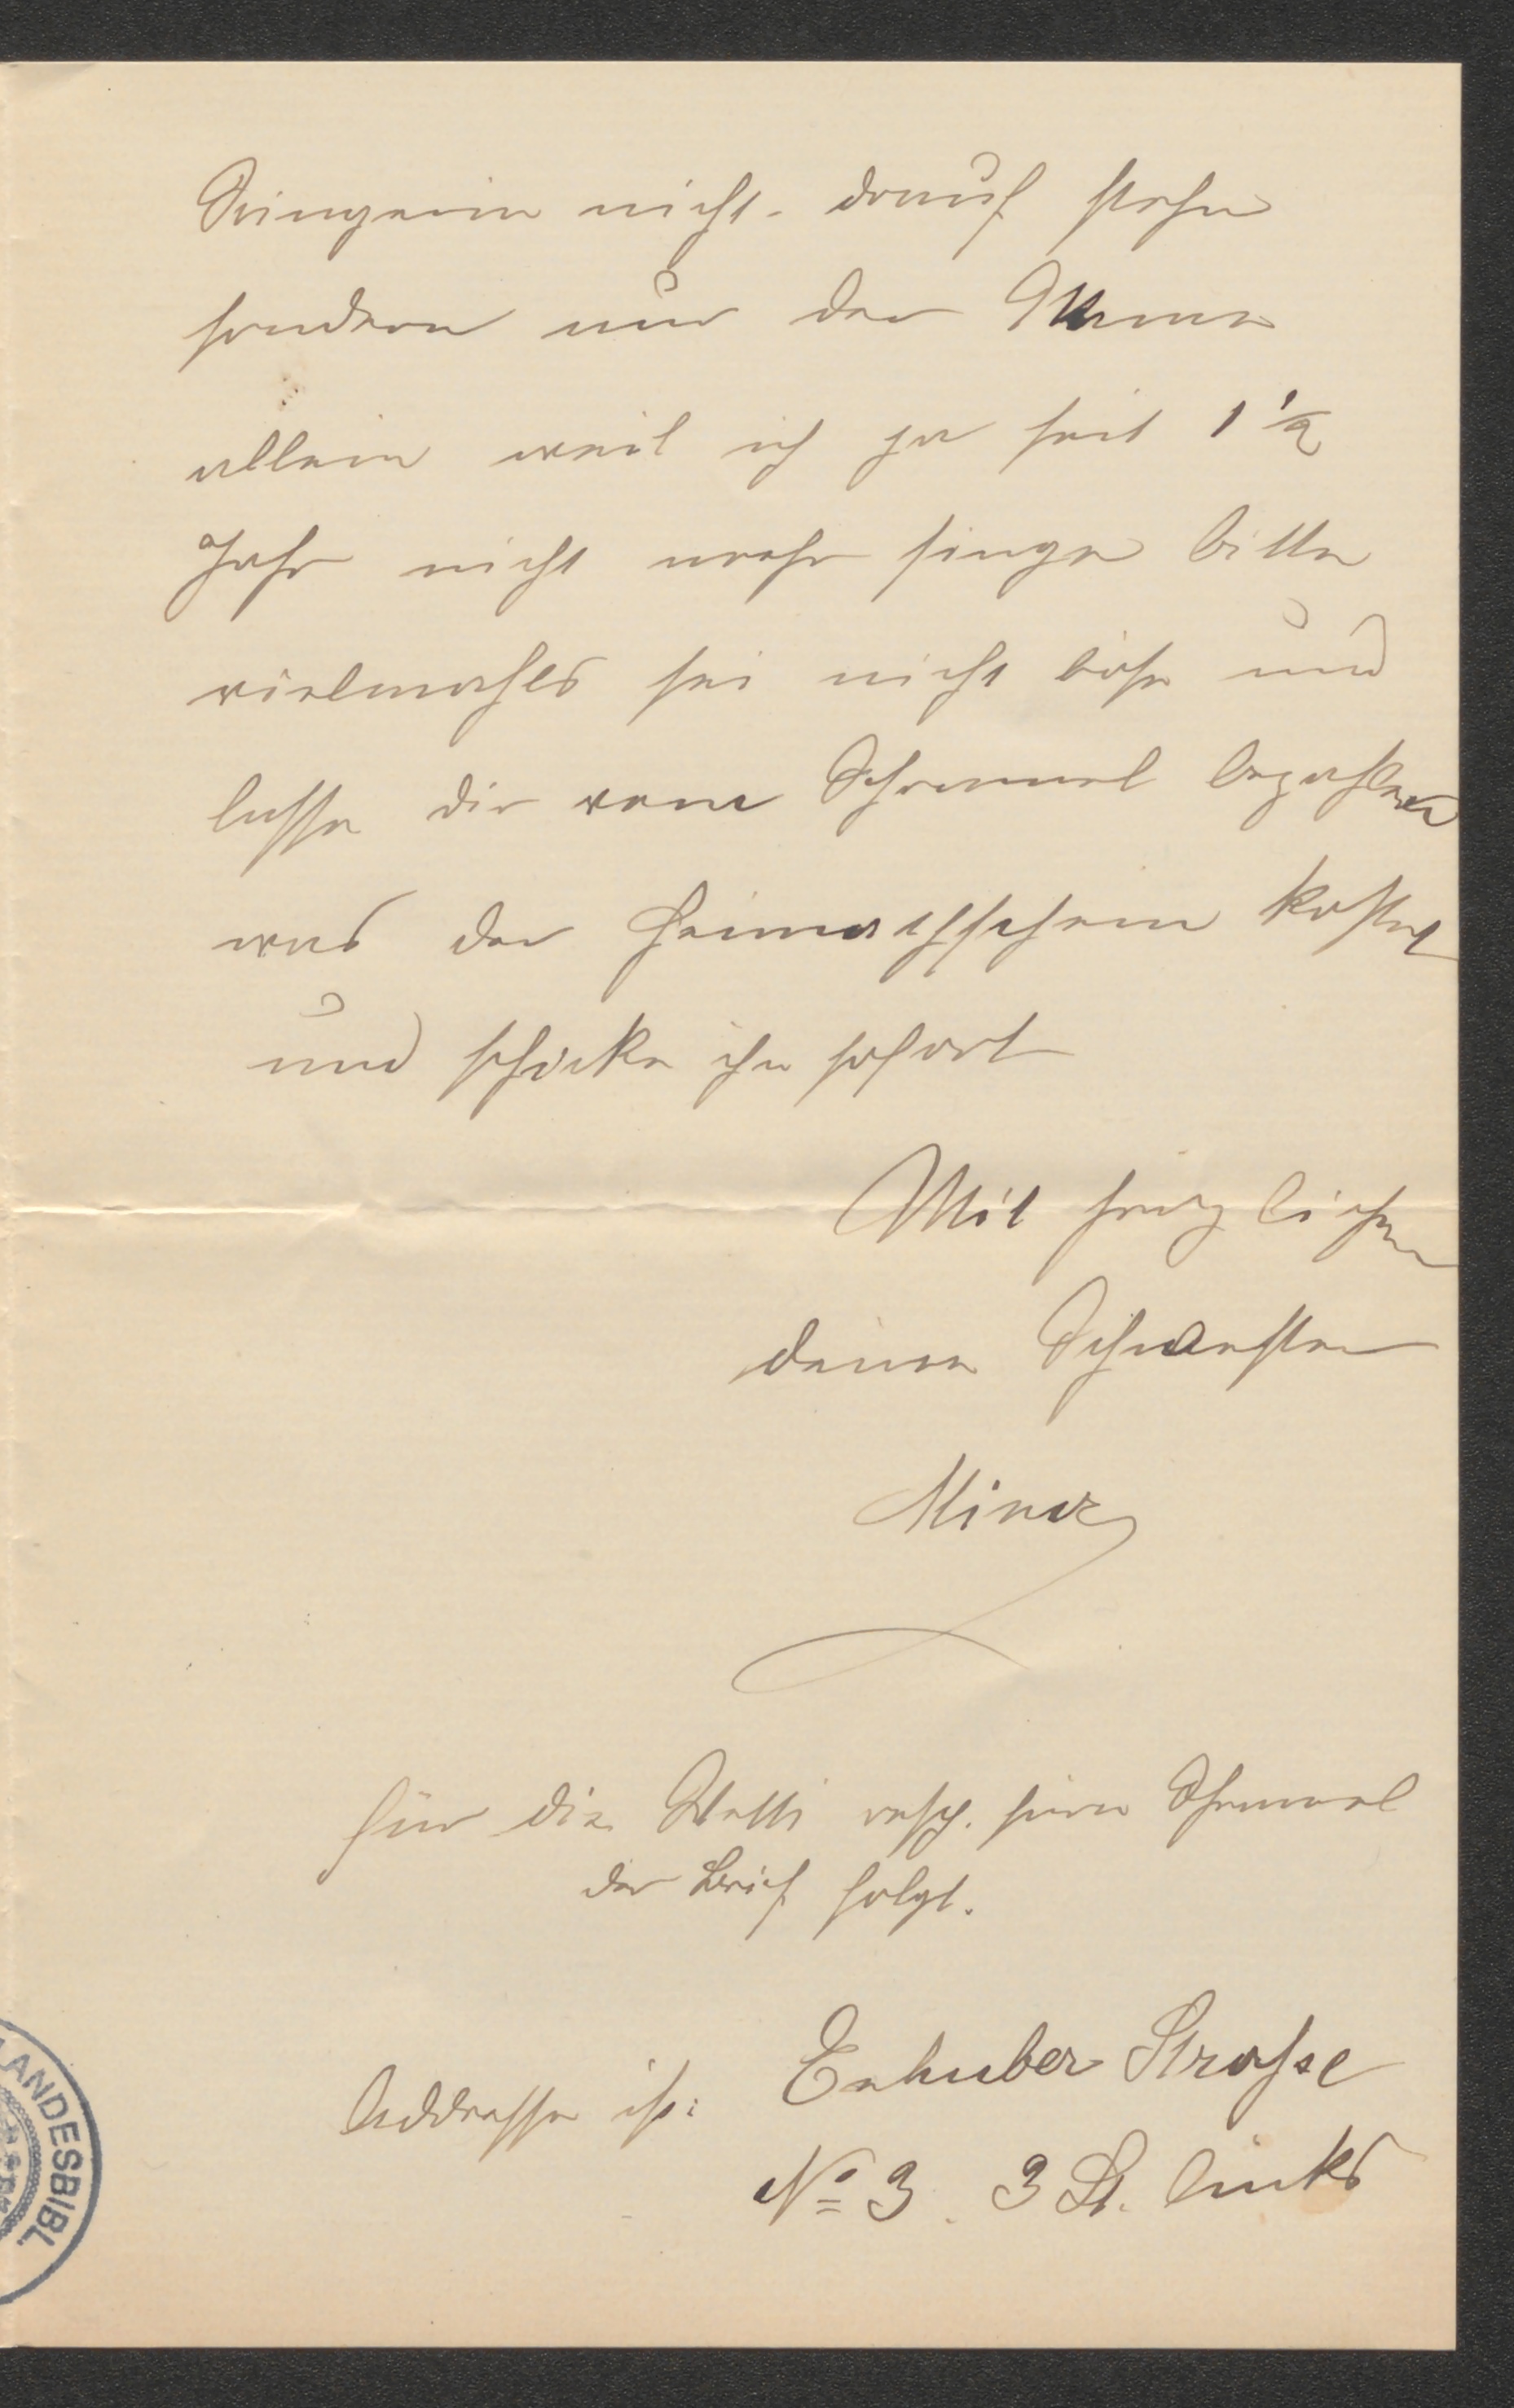 Sängerin nicht drauf stehen
sondern nur der Name
allein weil ich ja seit 1 1/2
Jahr nicht mehr singe bitte
vielmahls sei nicht böse und
lasse dir vom Schrammel bezahlen
was der Heimathschein kostet
und schicke ihn sofort
Mit herzlichen
deine Schwester
Mina
für die Betti resp. fürn Schrammel
der Brief folgt.
Addresse ist: Enhuber Strasse
No 3. 3 St. links
LANDESBIBL.